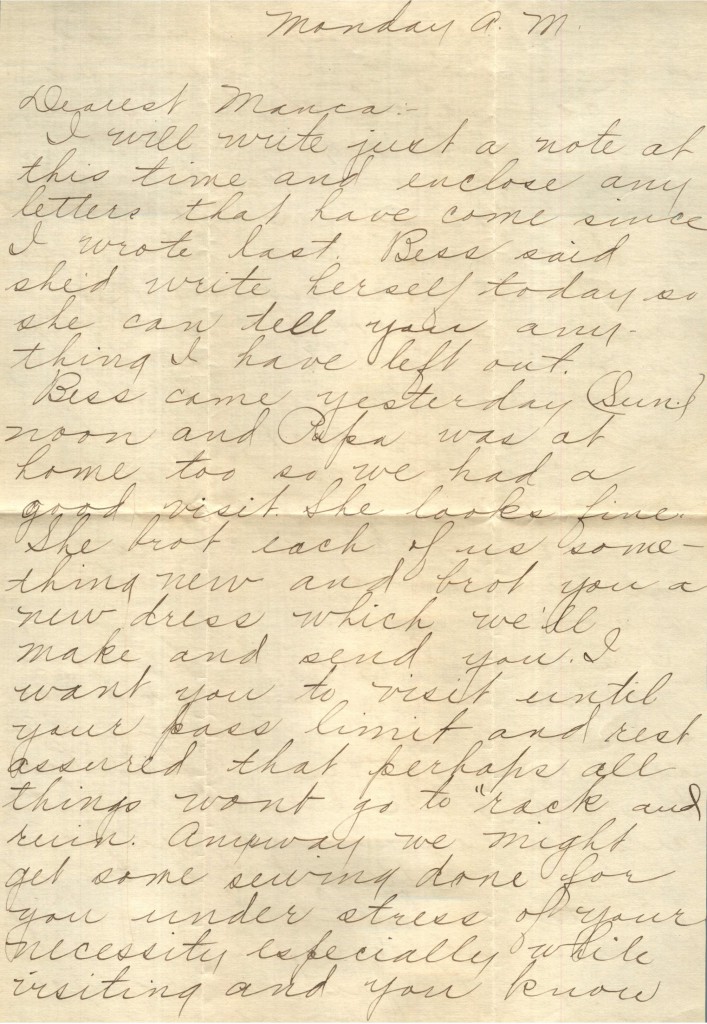 Monday A. M.
Dearest Manca:-
I will write just a note at
this time and enclose any
letters that have come since
I wrote last. Bess said
she'd write herself today so
she can tell you any-
thing I have left out.
Bess came yesterday (Sun.)
noon and Papa was at
home too so we had a
good visit. She looks fine.
She brot each of us some-
thing new and brot you a
new dress which we'll
make and send you. I
want you to visit until
your pass limit and rest
assured that perhaps all
things wont go to "rack and
ruin. Anyway we might
get some sewing done for
you under stress of your
necessity especially while
visiting and you know